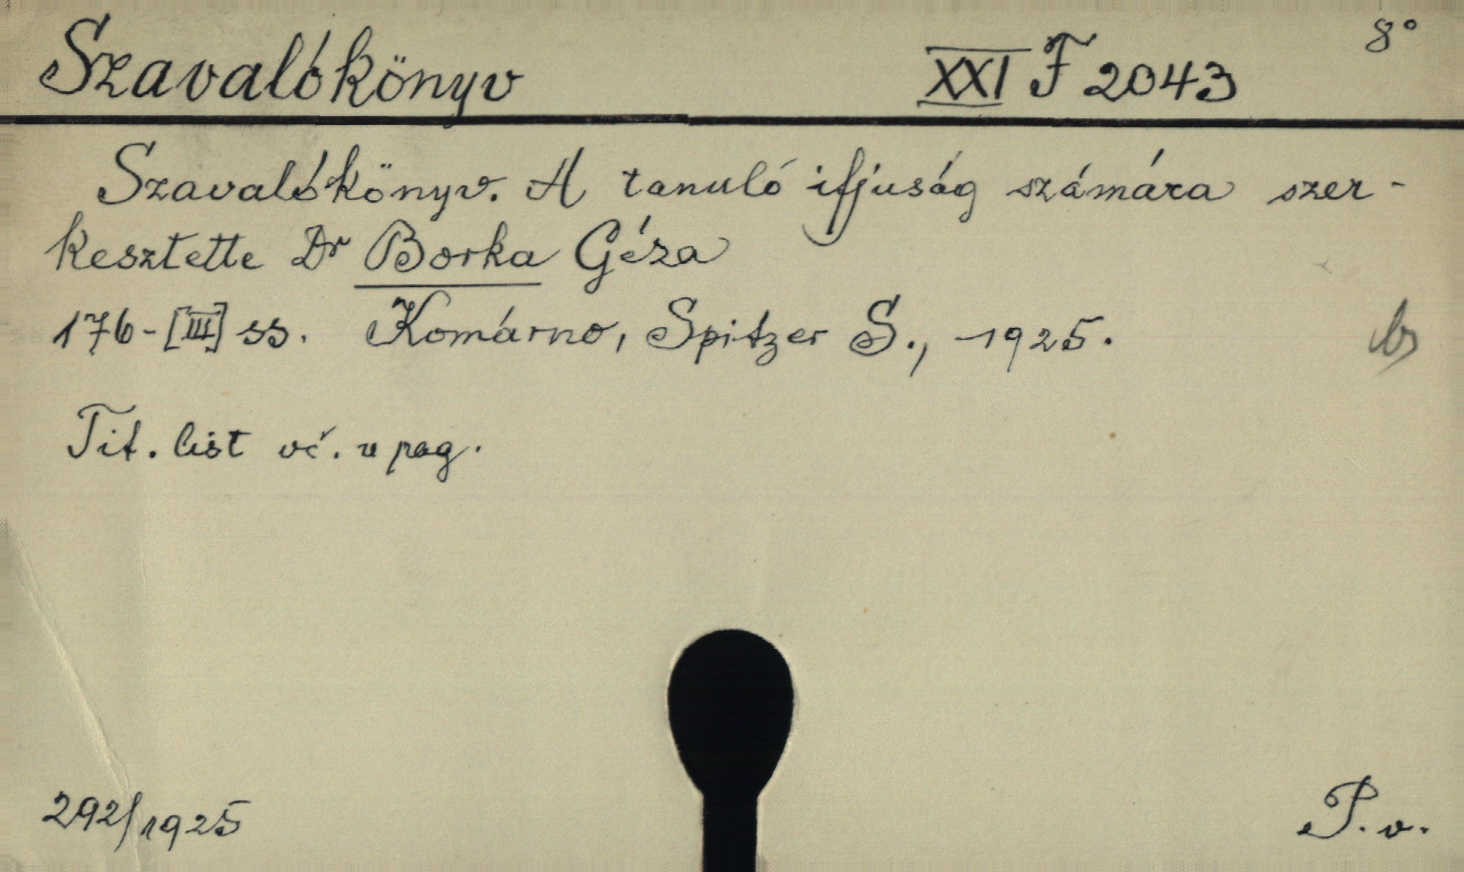 Szavalókönyv XXI F 2043 8°
Szavalókönyv. A tanuló ifjuság számára szer-
kesztette Dr Borka Géza
176-[III] ss. Komárno, Spitzer S., 1925.
Tit. list vč. v pag.
292/1925 P.v.